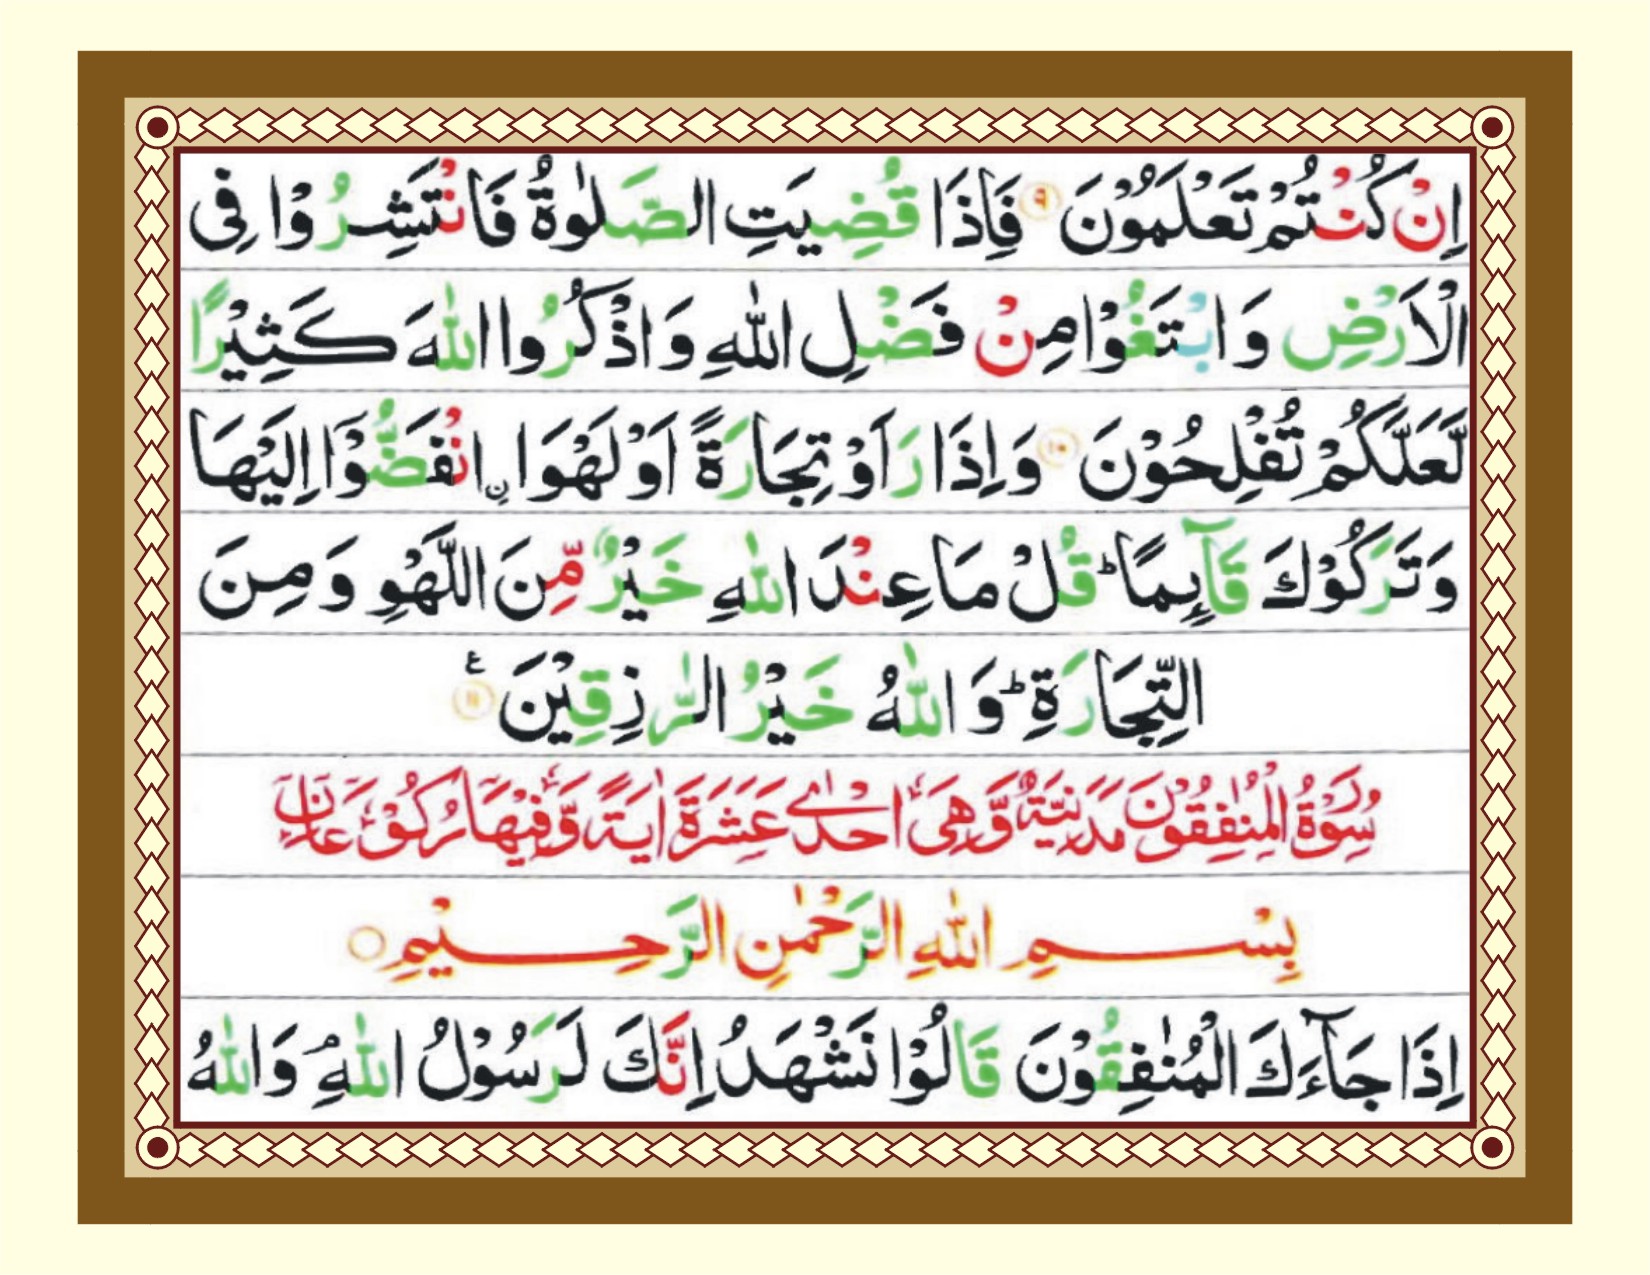 اِنْ كُنْتُمْ تَعْلَمُوْنَ ۹ فَاِذَا قُضِيَتِ الصَّلٰوةُ فَانْتَشِرُوْا فِى
الْاَرْضِ وَابْتَغُوْا مِنْ فَضْلِ اللّٰهِ وَاذْكُرُوا اللّٰهَ كَثِيْرًا
لَّعَلَّكُمْ تُفْلِحُوْنَ ۱۰ وَاِذَا رَاَوْ تِجَارَةً اَوْ لَهْوَا ۨانْفَضُّوْٓا اِلَيْهَا
وَتَرَكُوْكَ قَآىِٕمًا ؕ قُلْ مَا عِنْدَ اللّٰهِ خَيْرٌ مِّنَ اللَّهْوِ وَمِنَ
التِّجَارَةِ ؕ وَاللّٰهُ خَيْرُ الرّٰزِقِيْنَ ۱۱ ع
سُوْرَةُ الْمُنٰفِقُوْنَ مَدَنِيَّةٌ وَّهِىَ اِحْدٰى عَشَرَةَ اٰيَةً وَّفِيْهَا رُكُوْعَانِ
بِسْمِ اللّٰهِ الرَّحْمٰنِ الرَّحِيْمِ
اِذَا جَآءَكَ الْمُنٰفِقُوْنَ قَالُوْا نَشْهَدُ اِنَّكَ لَرَسُوْلُ اللّٰهِ ۘ وَاللّٰهُ